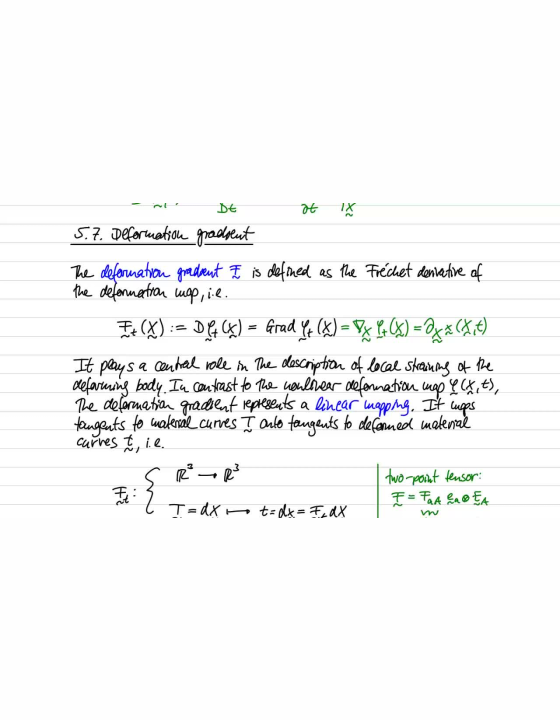 Dt ∂t |X
5.7. Deformation gradient
The deformation gradient F is defined as the Fréchet derivative of
the deformation map, i.e.
F_t(X) := Dφ_t(X) = Grad φ_t(X) = ∇_X φ_t(X) = ∂_X x(X,t)
It plays a central role in the description of local straining of the
deforming body. In contrast to the nonlinear deformation map φ(X,t),
The deformation gradient represents a linear mapping. It maps
tangents to material curves T onto tangents to deformed material
curves t, i.e.
F_t : { ℝ³ → ℝ³
T = dX ↦ t = dx = F_t dX
two-point tensor:
F = F_aA e_a ⊗ E_A